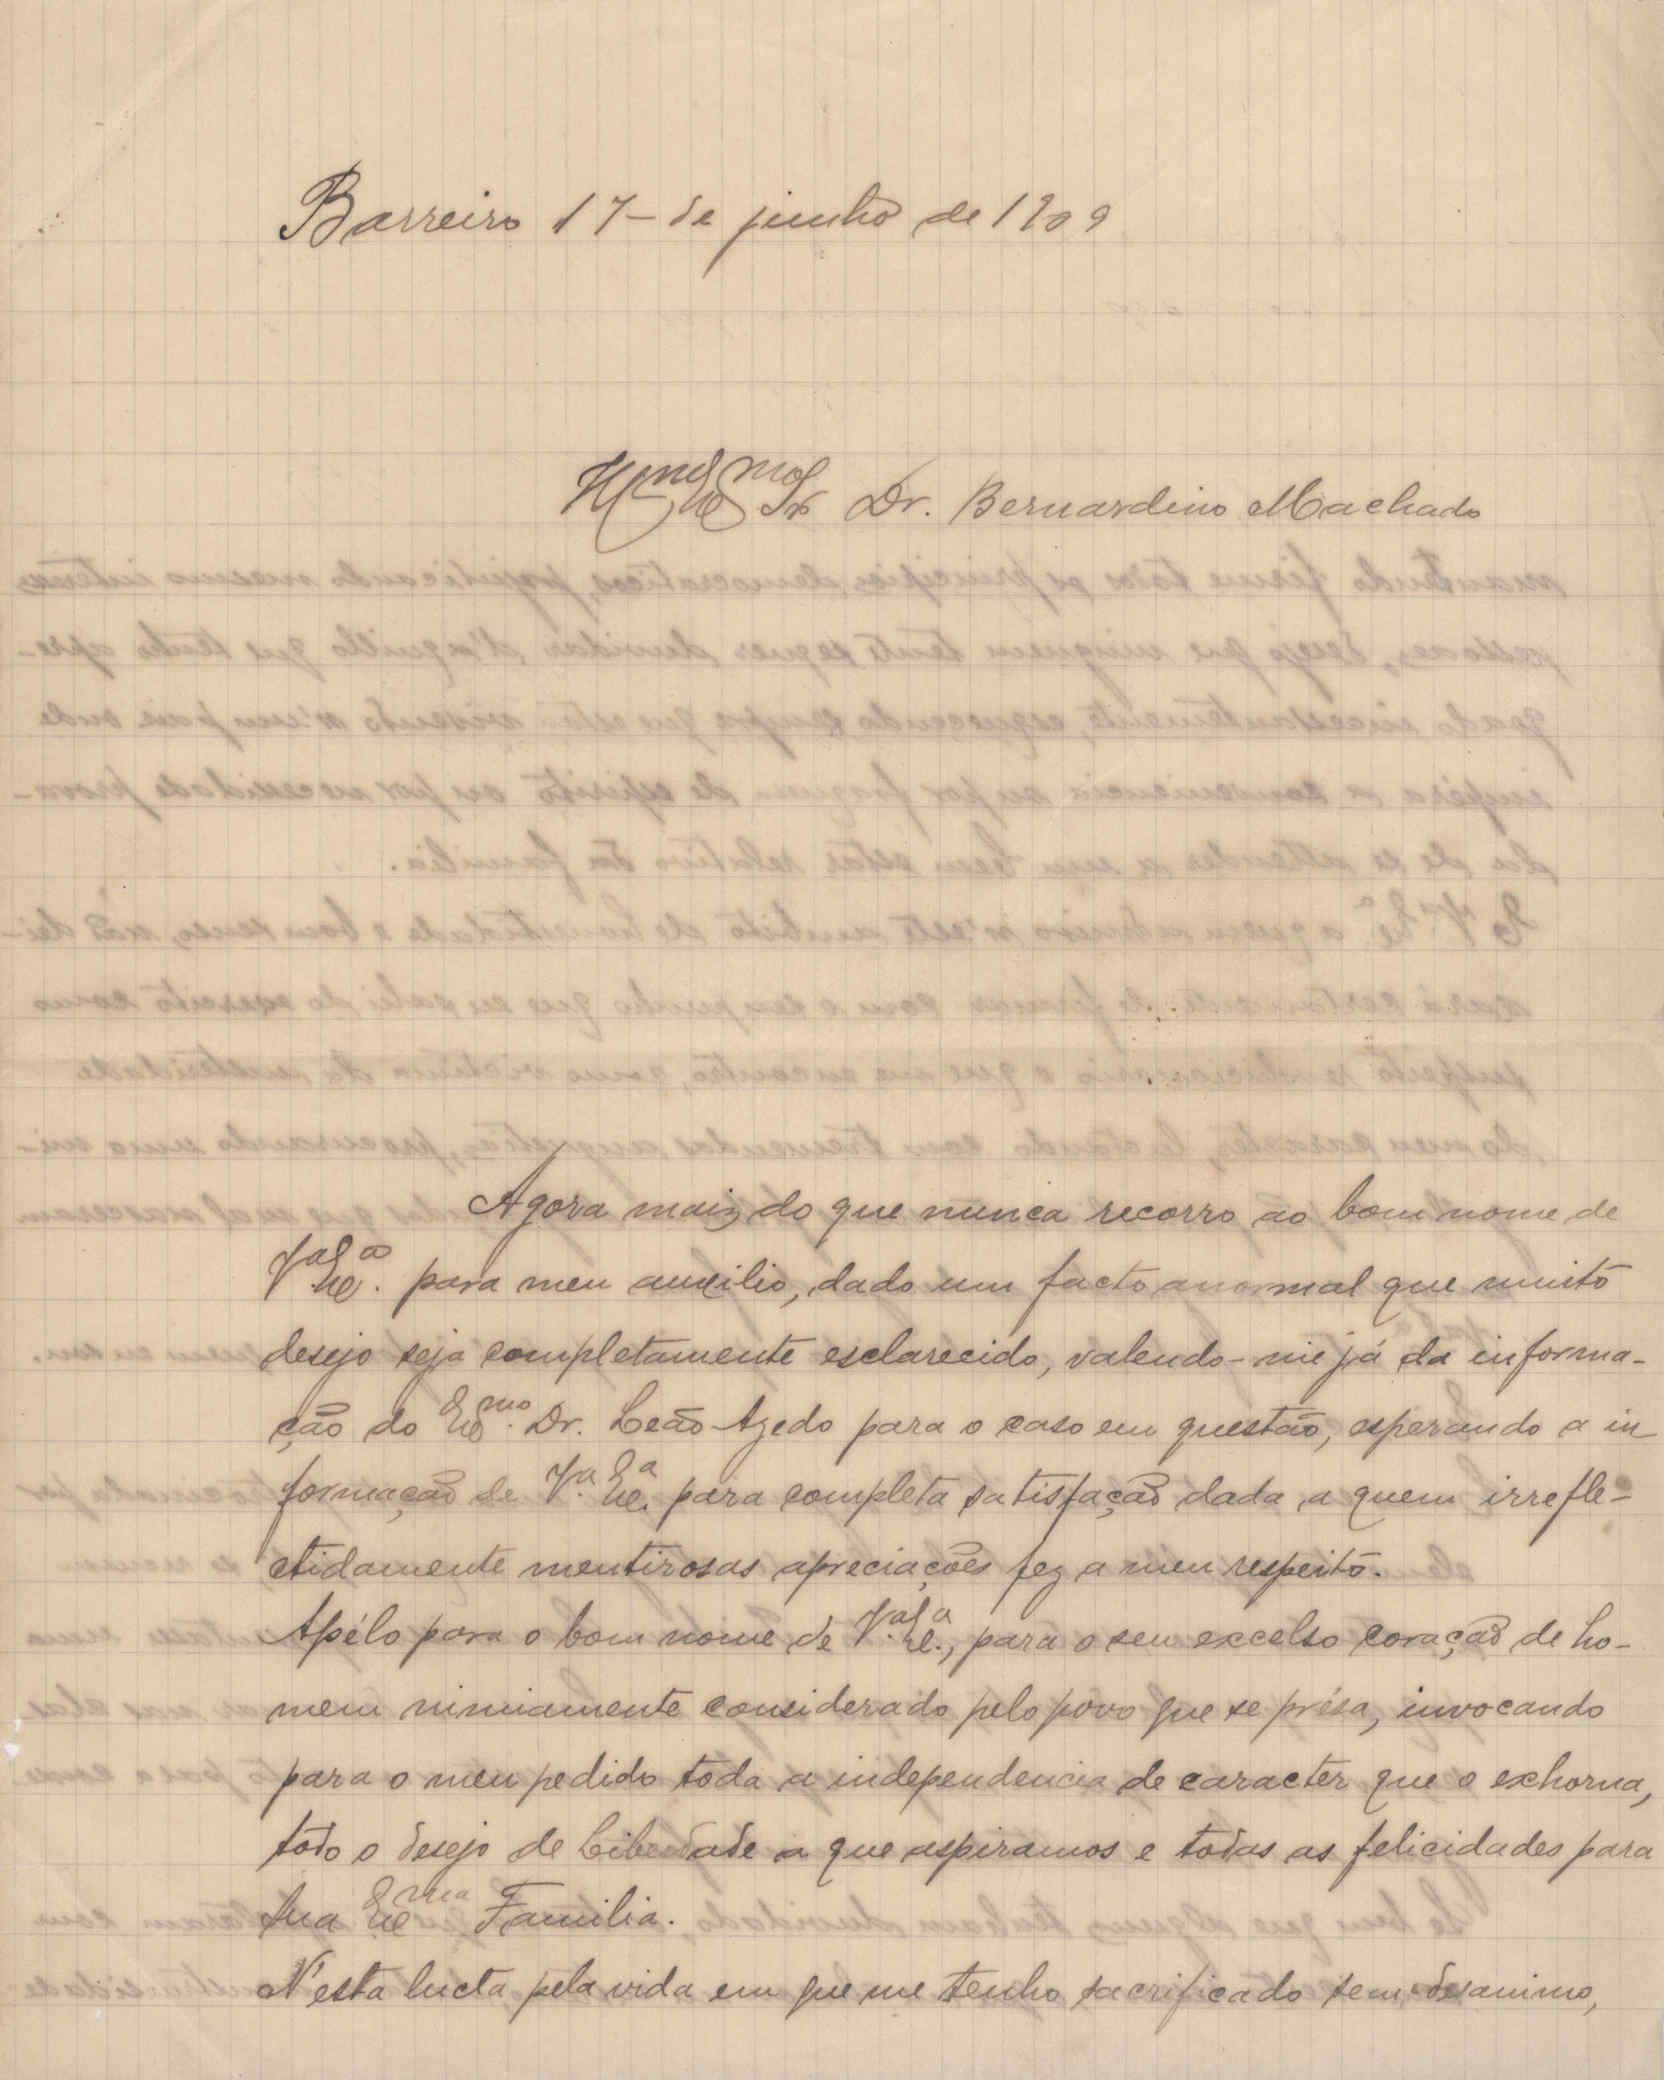 Barreiro 17- de junho de 1909
Illmo Exmo Sr Dr. Bernardino Machado
Agora mais do que nunca recorro ao bom nome de
Va Exa. para meu auxilio, dado um facto anormal que muito
desejo seja completamente esclarecido, valendo-me já da informa-
ção do Exmo. Dr. Leão Azedo para o caso em questão, esperando a in
formação de Va. Exa. para completa satisfação dada a quem irrefle-
ctidamente mentirosas apreciações fez a meu respeito.
Apélo para o bom nome de Va. Exa., para o seu excelso coração de ho-
mem nimiamente considerado pelo povo que se présa, invocando
para o meu pedido toda a independencia de caracter que o exhorna,
todo o desejo de Liberdade a que aspiramos e todas as felicidades para
sua Exma Familia.
N'esta lucta pela vida em que me tenho sacrificado sem desanimo,